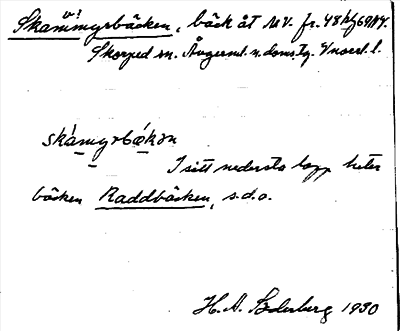 Skammyrbäcken, bäck åt NV. fr. 48
Skorped sn. Ångerml. n. doms.
skámyrbækɔn
I sitt nedersta lopp heter
bäcken Raddbäcken, s.d.o.
H. A. Söderberg 1930